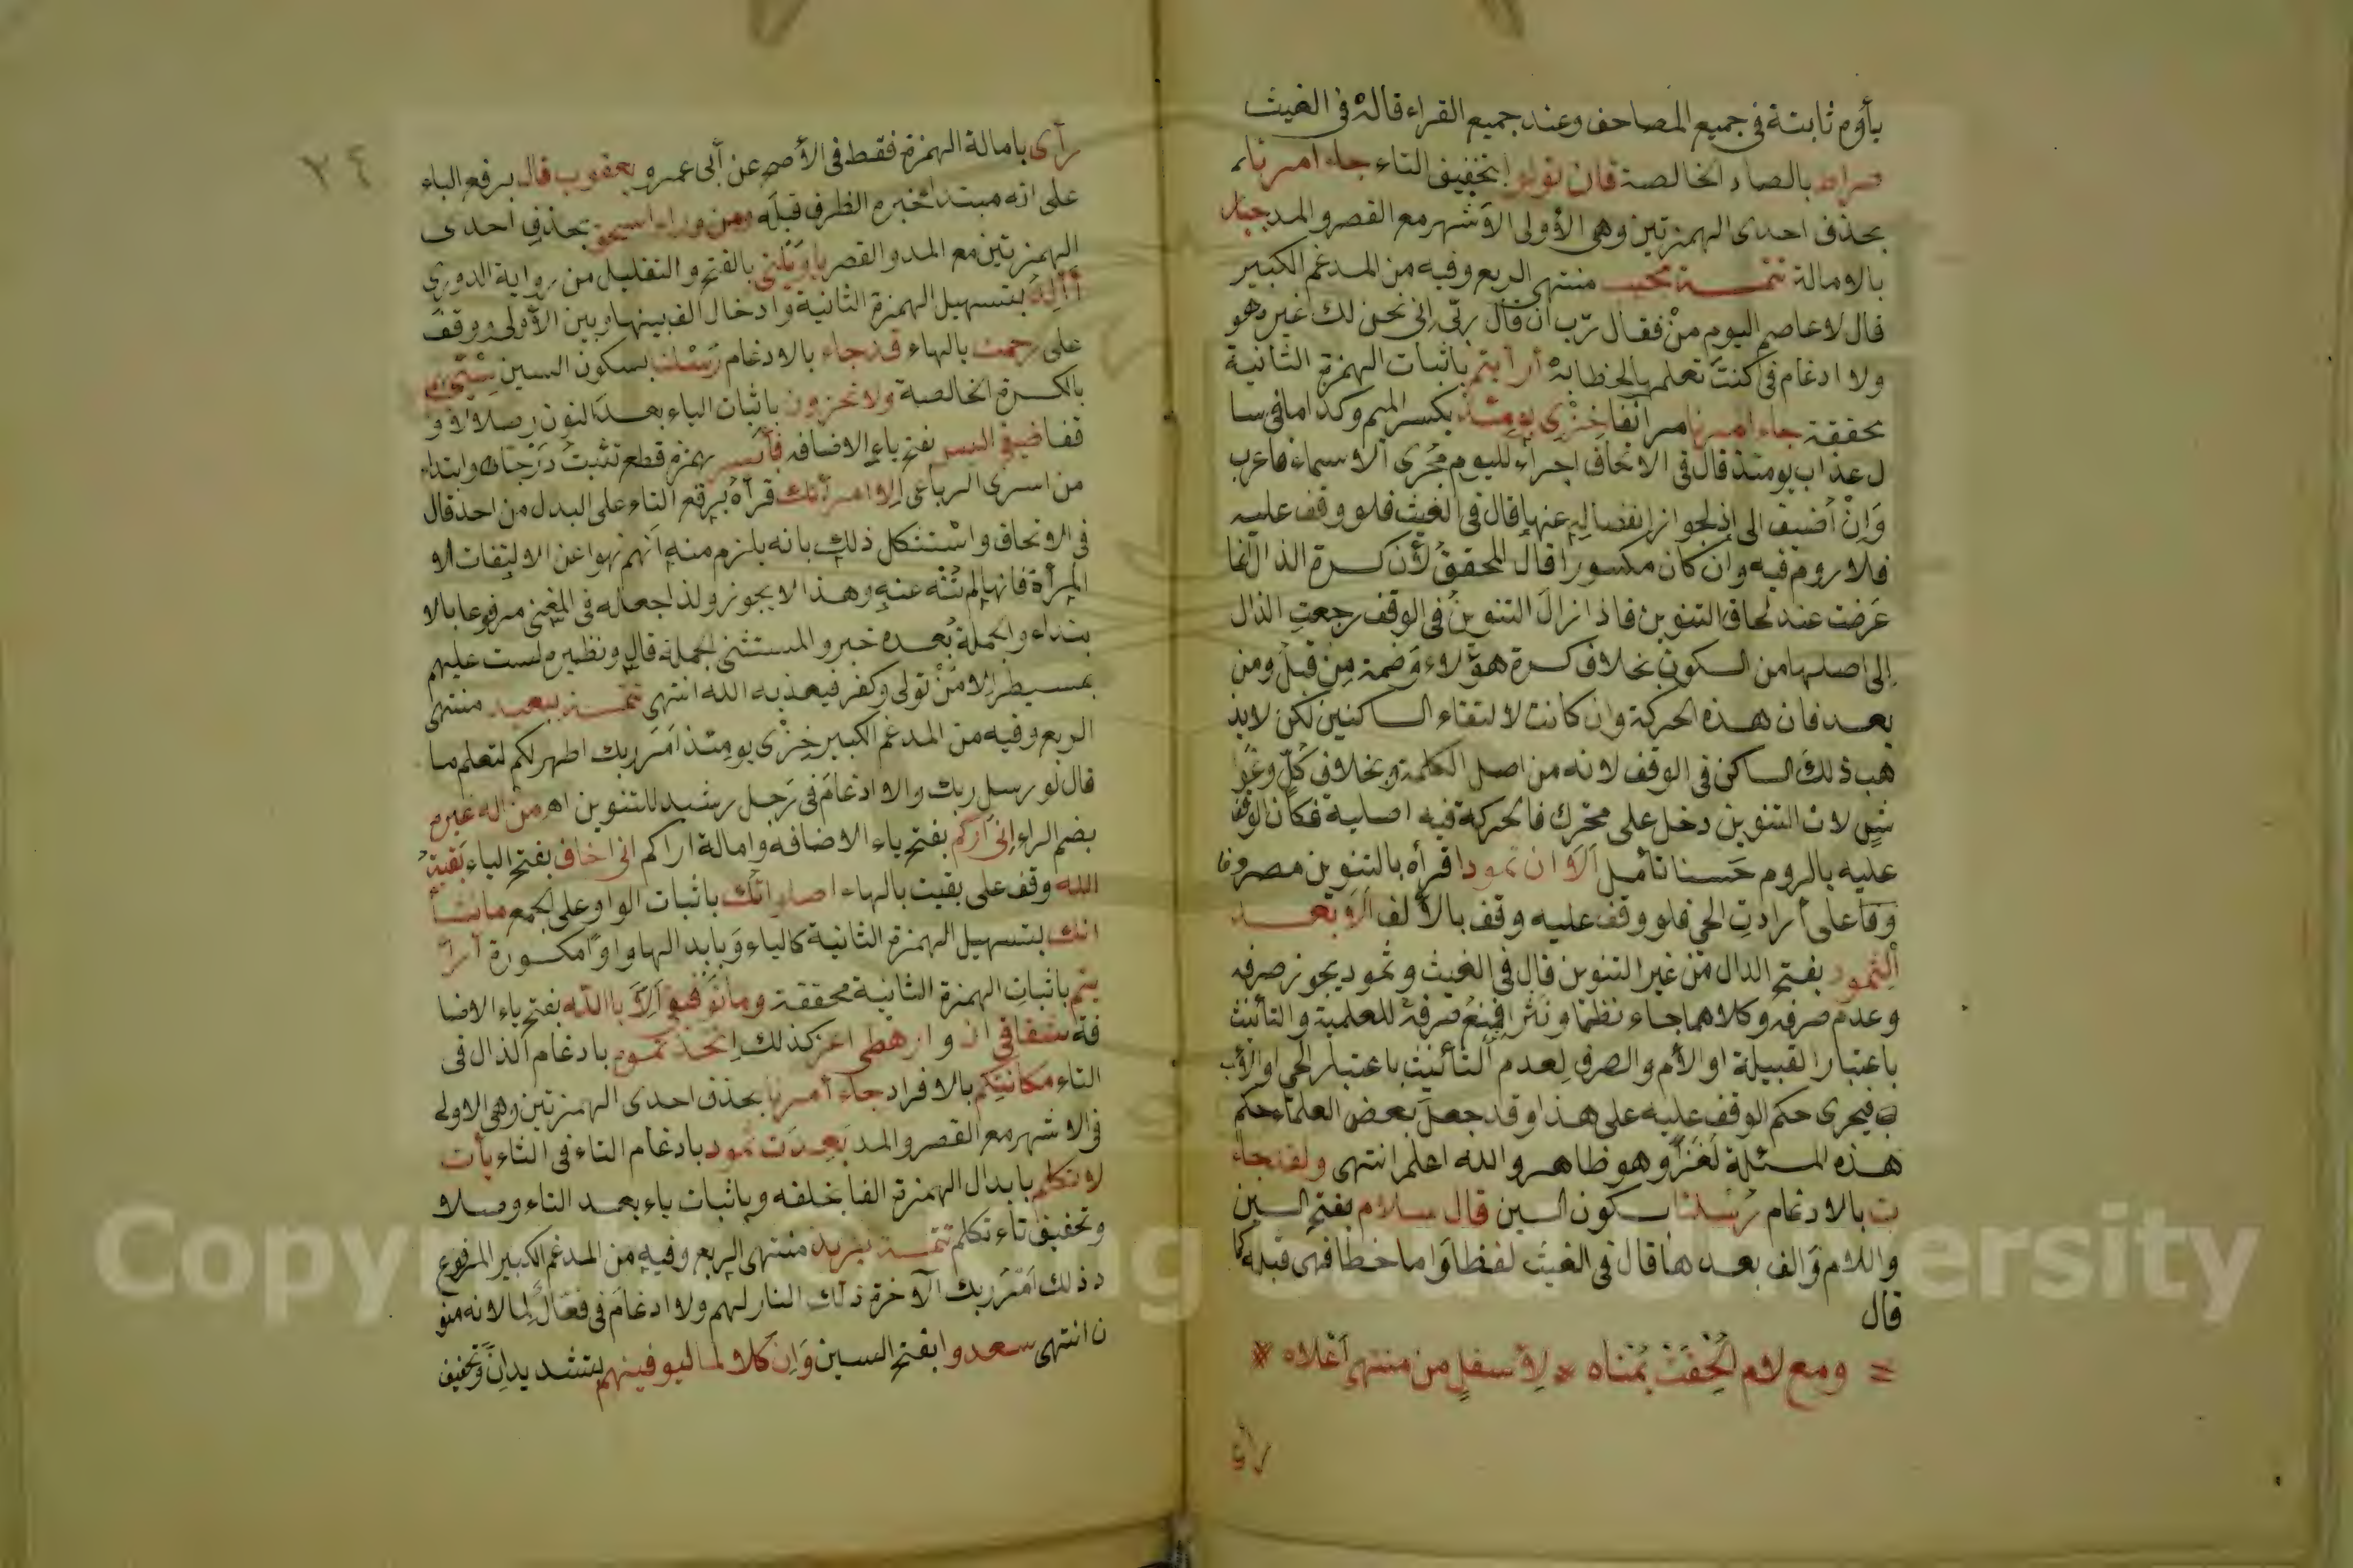 يأوم ثابتة في جميع المصاحف وعند جميع القراء قاله في الغيث
صراط بالصاد الخالصة فان تولوا بتخفيف التاء جاء امرنا
بحذف احدى الهمزتين وهي الأولى الأشهر مع القصر والمد جبار
بالامالة تتمــة مجيب منتهى الربع وفيه من المدغم الكبير
قال لا عاصم اليوم منْ فقال رّب ان قال ربّى انى نحن لك غيره هو
ولا ادغام في كنتَ تعلمها لخطابهْ أرأيتم باثبات الهمزة الثانية
محققة جاء امرنا مر آنفا خِزْىِ يومِئذ بكسر الميم وكذا ما في سا
ل عذاب يومئذ قال في الاتحاف اجراء لليوم مُجْرى الاسماء فاعرب
وَإِنْ أضيف الى إذ لجواز انفصاله عنها قال في الغيث فلو وقف عليه
فلا روم فيه وان كان مكسورا قال المحققُ لأن كسرة الذال انما
عَرَضت عند لحاق التنوين فاذا زالَ التنوينُ في الوقف رجعتِ الذال
إلى اصلها من السكون بخلاف كسرة هؤلاءِ وَضمة مِنْ قبلُ ومن
بعد فان هذه الحركة وان كانت لالتقاء الساكنين لكن لا يذ
هب ذلك الساكن في الوقف لانه من اصل الكلمة وبخلاف كلٍّ وغوا
شٍ لان التنوين دخل على محرّك فالحركة فيه اصلية فكان الوقف
عليه بالروم حَسنا تأمل أَلَا ان ثمودا قرأه بالتنوين مصروفا
وَقفا على أرادتِ الحي فلو وقف عليه وقف بالألف أَلَا بُعْــد
اَلِثمود بفتح الدال منْ غير التنوين قال في الغيث وثمود يجوز صرفه
وعدم صرفه وكلاهما جاء نظما ونثرا فمنعُ صرفهْ للعلمية والتأنيث
باعتبار القبيلة او الأم والصرف لعدم التأنيث باعتبار الحي او الأب
ب فيجرى حكم الوقف عليه على هذا وقد جعل بعض العلماء حكم
هذه المسئلة لُغْزًا وهو ظاهر والله اعلم انتهى ولقد جاء
ت بالادغام رُسْلنا بسكون السين قال سلام بفتح السين
واللام وَالف بعدها قال في الغيث لفظا وَاما خطا فهى قبله كما
قال
ومع لام أُلْحِقَتْ يُمْناه * لِاسفلٍ من منتهى أعْلاه *
رأى
٢٤
رأى بامالة الهمزة فقط في الأصح عن أبى عمرو يعقوب قال برفع الباء
على انه مبتدأ خبره الظرف قبله ومن وراء اسحق بحذف احدى
الهمزتين مع المد والقصر ياوَيْلتى بالفتح والتقليل من رواية الدورى
أألِدُ بتسهيل الهمزة الثانية وادخال الف بينها وبين الأولى ووقف
على رحمت بالهاء قد جاء بالادغام رُسْلنا بسكون السين سِىْءَ
بالكسرة الخالصة ولا تخزون باثبات الياء بعد النون وصلا لا و
قفا ضيفى اليس بفتح ياء الاضافه فأسر بهمزة قطع تثبت دَرْجا وابتداء
من اسرى الرباعى الا امرأتك قرأه برفع التاء على البدل من احد قال
في الاتحاف واستشكل ذلك بانه يلزم منه انهم نهوا عن الالتفات الا
المرأة فانها لم تُنْهَ عنه وهذا لا يجوز ولذا جعله في المغنى مرفوعا بالا
بتداء والجملة بُعده خبر والمستثنى الجملة قال ونظيره لست عليهم
بمسيطر إلا منْ تولى وكفر فيعذبه الله انتهى تتمــة ببعيد منتهى
الربع وفيه من المدغم الكبير خِزْىِ يومئذ امَرَ ربك اطهر لكم لتعلم ما
قال لو رسل ربك ولا ادغام في رجل رشيد للتنوين اهـ من اله غيره
بضم الراء إنى أركم بفتح ياء الاضافه وامالة اراكم انى اخاف بفتح الياء بَقيتُ
الله وقف على بقيت بالهاء اصلواتك باثبات الواو على الجمع ما نشأ
انك بتسهيل الهمزة الثانية كالياء وَبابدالها واوًا مكسورة أرأ
يتم باثبات الهمزة الثانية محققة وما توفيقى إلّا بالله بفتح ياء الاضا
فة شقاقى ان و ارهطى اعز كذلك اتخذتموه بادغام الذال في
التاء مكانتِكم بالافراد جاء أمرنا بحذف احدى الهمزتين وهى الاولى
في الاشهر مع القصر والمد بَعِدَت ثمود بادغام التاء في الثاء يأت
لا تكلم بابدال الهمزة الفا بخلفه وباثبات ياء بعد التاء وصلا
وتخفيف تاء تكلم تتمــة يزيد منتهى الربع وفيه من المدغم الكبير المرفوع
د ذلك امْرُ ربك الآخرة ذلك النار لهم ولا ادغام في فعّالٌ لِما لانه منو
ن انتهى سعدوا بفتح السين وَإن كلا لما ليوفينهم بتشديد إنَّ وَتخفيف